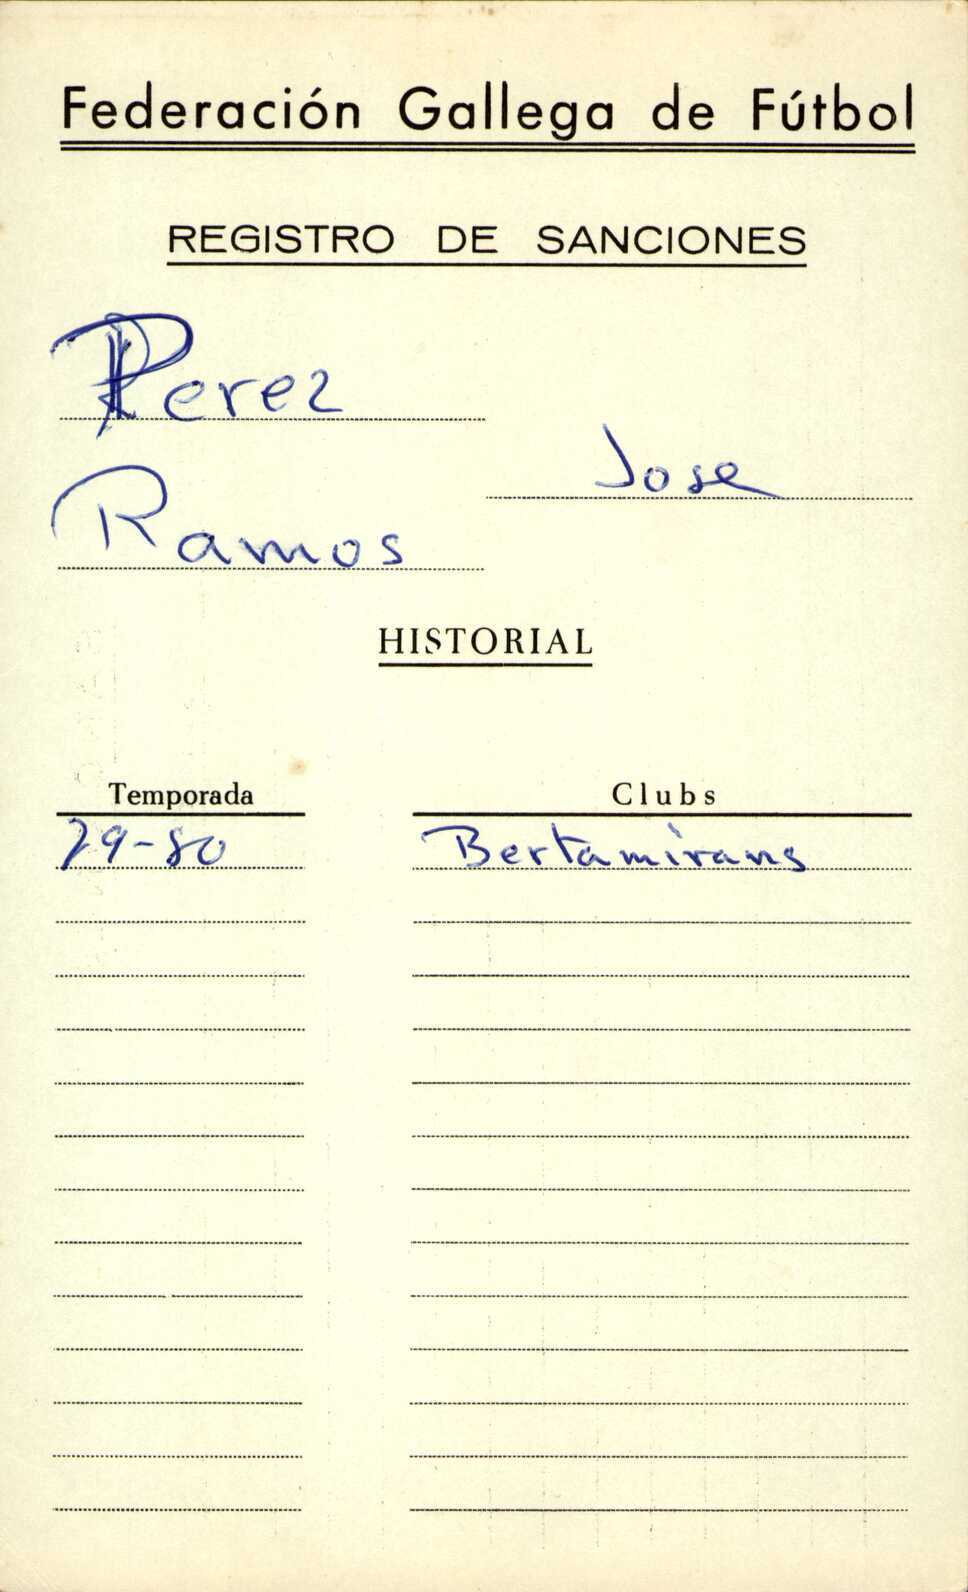 Federación Gallega de Fútbol
REGISTRO DE SANCIONES
Perez
Jose
Ramos
HISTORIAL
Temporada Clubs
79-80 Bertamirans